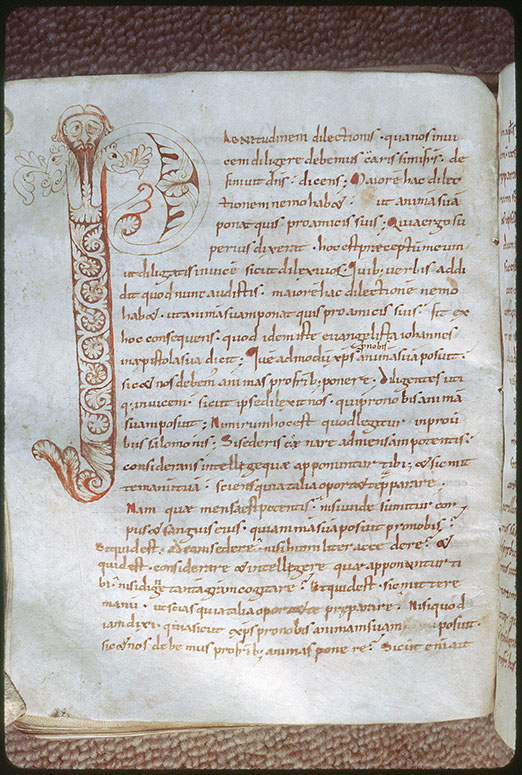 PLENItudinem dilectionis · qua nos inui
cem diligere debemus · carissimi fr̃s · de
finiuit dñs · dicens; Maiorē hac dilec
tionem nemo habet · ut animā suā
ponat quis pro amicis suis; Quia ergo su
perius dixerat · hoc est praeceptū meum
ut diligatis inuicē sicut dilexi uos · Quib; uerbis addi
dit quod nunc audistis · maiorē hac dilectionē nemo
habet · ut animā suam ponat quis pro amicis suis · fit ex
hoc consequens · quod idem iste euangelista iohannes
in epistola sua dicit; Quē ad modū xp̄s pro nobis animā suā posuit ·
sic et nos debem; animas pro frīb; ponere · Diligentes uti
q; inuicem · sicut ipse dilexit nos · qui pro nobis animā
suam posuit; Nimirum hoc est quod legitur in prouer
biis salomonis; Si sederis cēnare ad mensam potentis ·
considerans intellege quae apponuntur tibi; et sic mit
te manū tuā · sciens quia talia oportet te pparare ·
Nam quae mensa est potentis · nisi unde sumitur cor
pus et sanguis eius · qui animā suā posuit pro nobis ·
Et quid est · ad eam sedere · nisi humiliter accedere · et
quid est · considerare et intellegere quae apponuntur ti
bi · nisi digne tantā gratiam cogitare · Et quid est · sic mittere
manū · ut scias quia talia oportet te preparare · Nisi quod
iam dixi · quia sicut xp̄s pro nobis animam suam posuit ·
sic et nos debemus pro frīb; animas ponere · Sicut enī ait